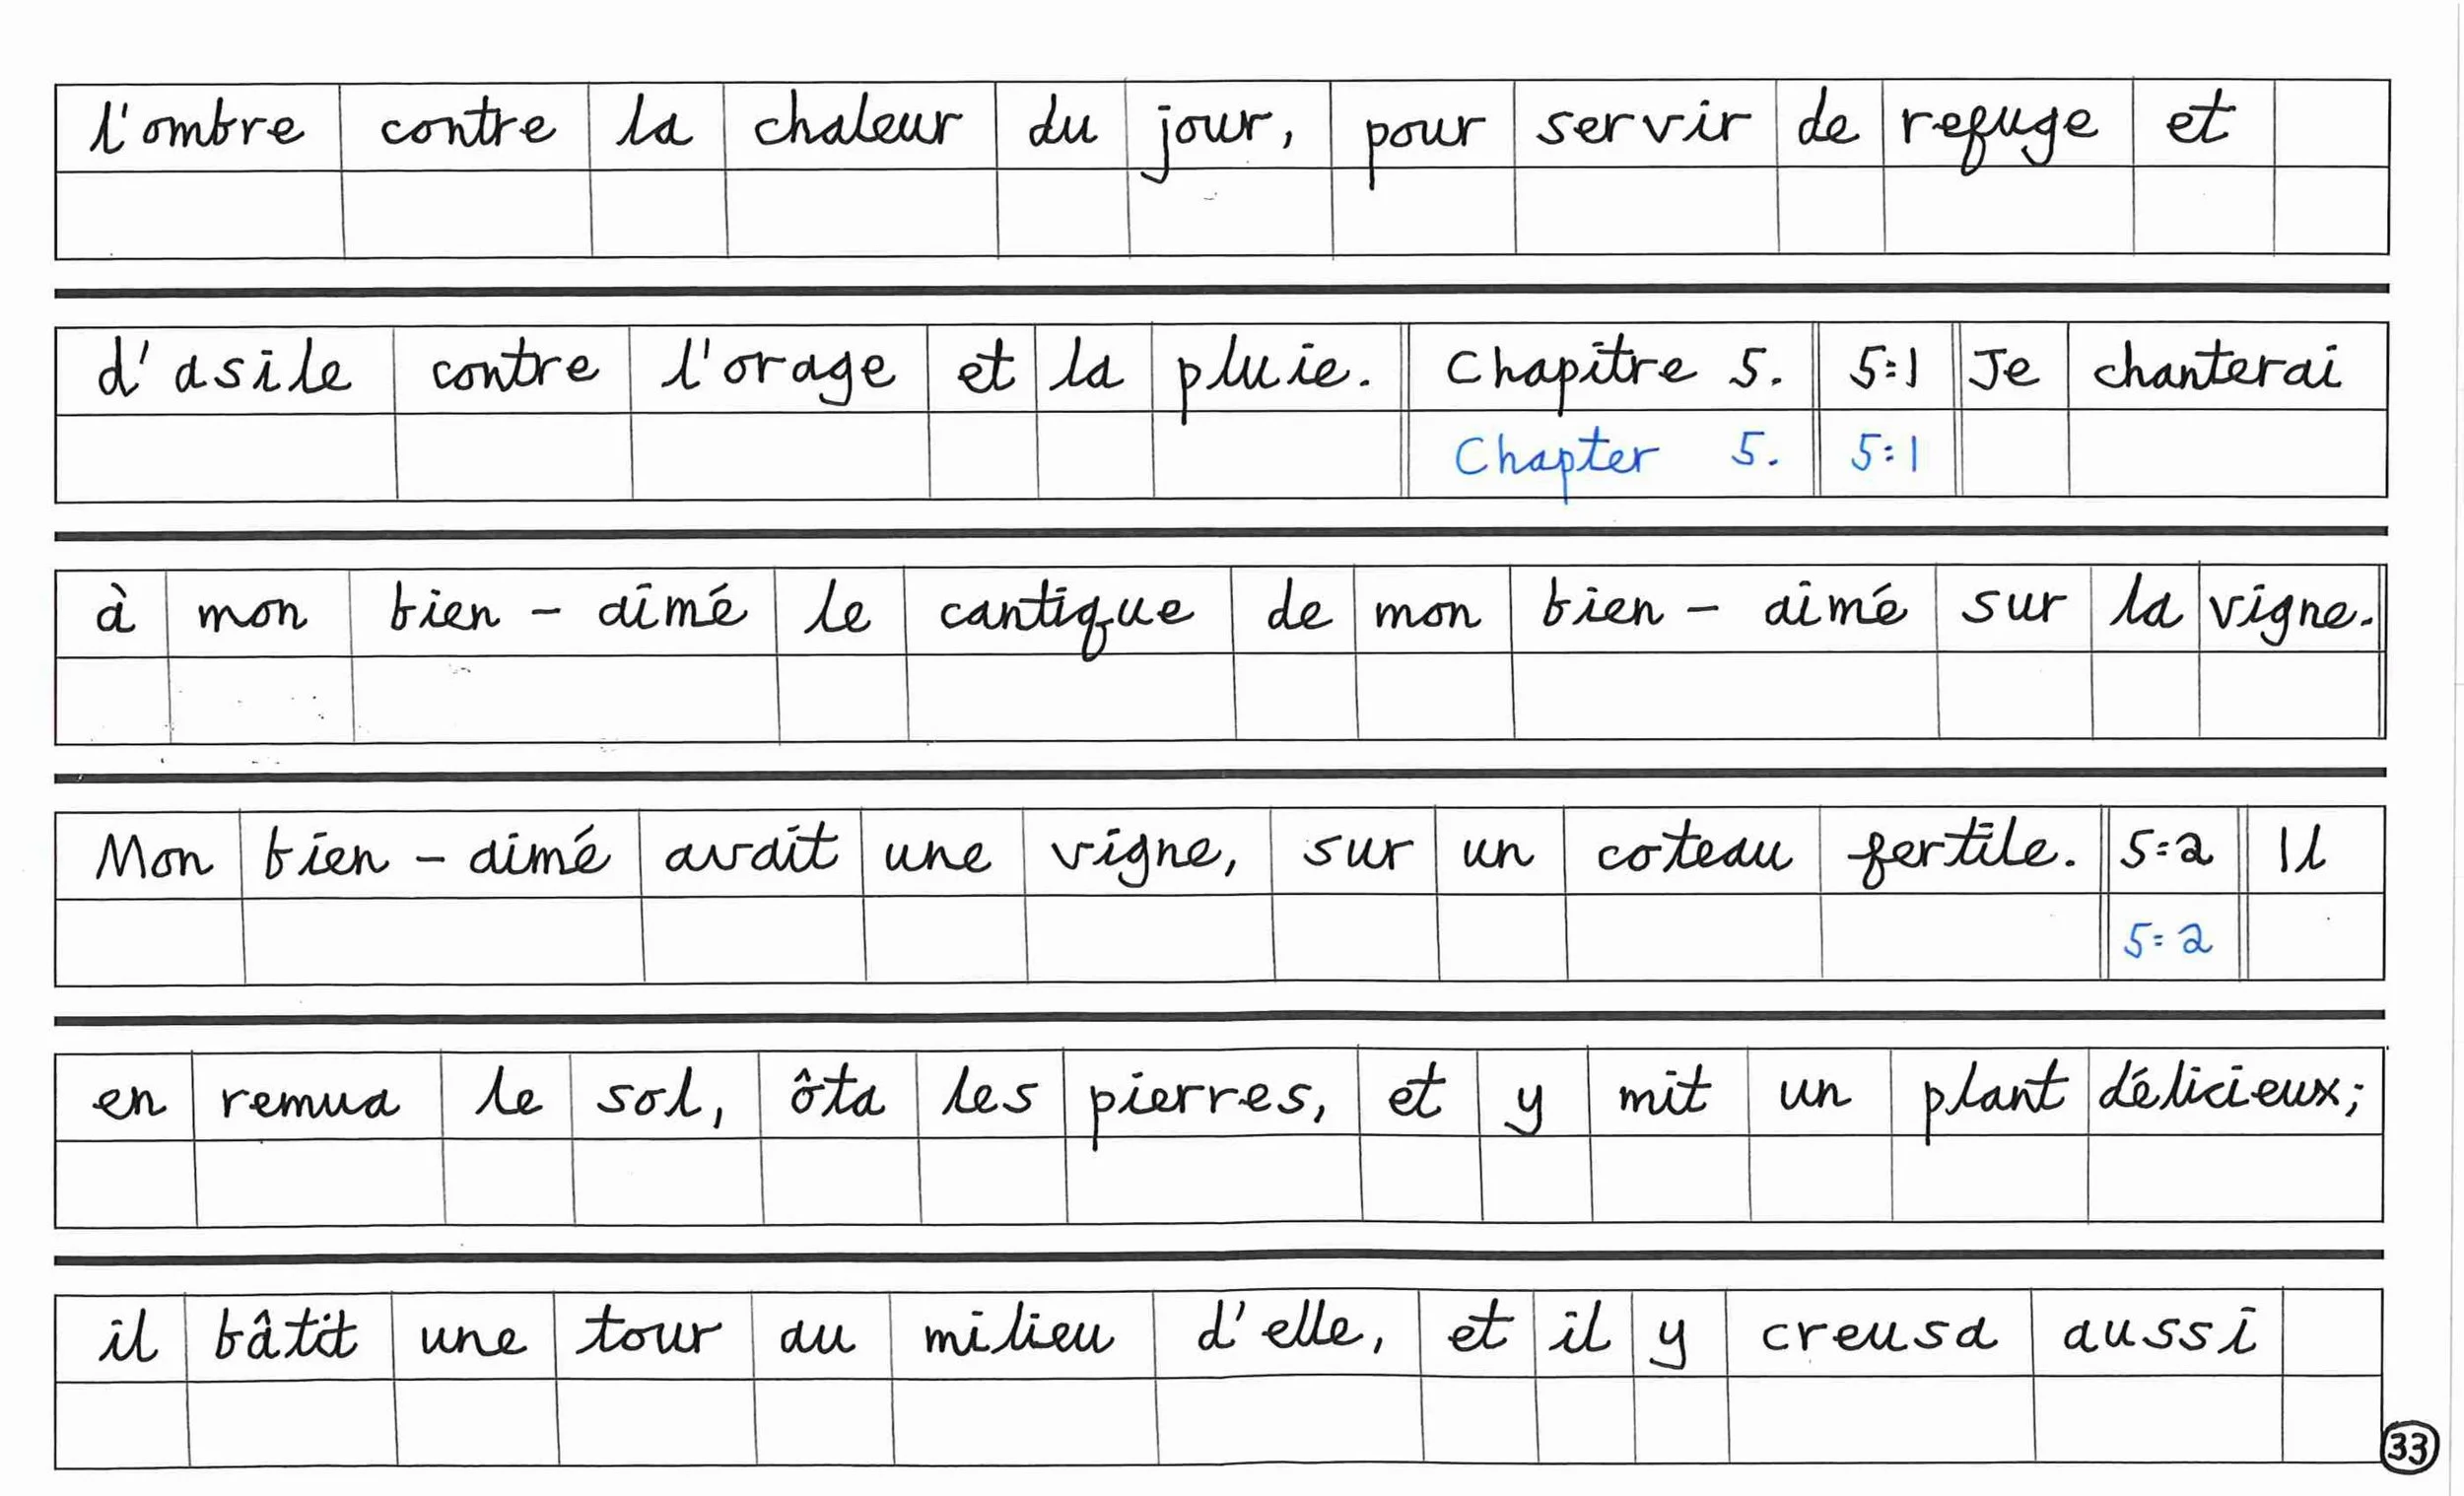 l'ombre contre la chaleur du jour, pour servir de refuge et
d'asile contre l'orage et la pluie. Chapitre 5. 5:1 Je chanterai
Chapter 5. 5:1
à mon bien-aimé le cantique de mon bien-aimé sur la vigne.
Mon bien-aimé avait une vigne, sur un coteau fertile. 5:2 Il
5:2
en remua le sol, ôta les pierres, et y mit un plant délicieux;
il bâtit une tour au milieu d'elle, et il y creusa aussi
33